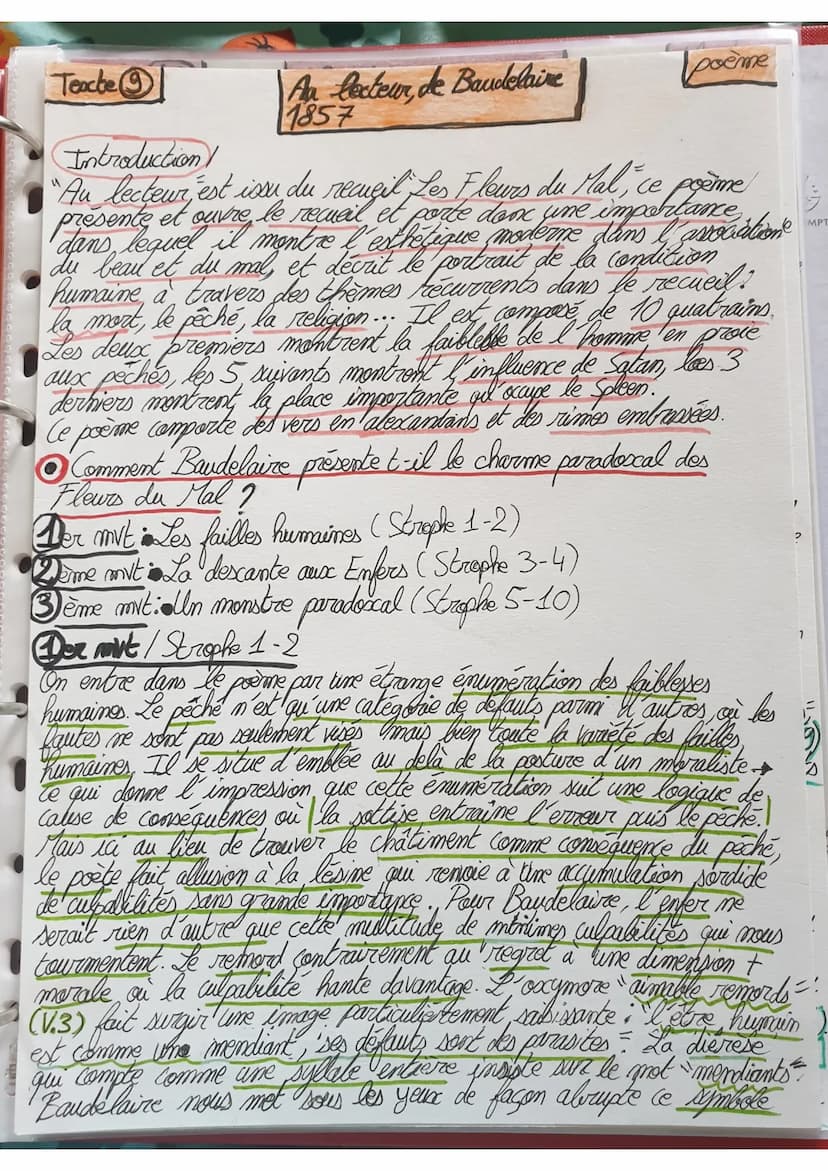 Texte 9
Au lecteur, de Baudelaire
1857
poème
Introduction/
"Au lecteur" est issu du recueil "Les Fleurs du Mal", ce poème
présente et ouvre le recueil et porte donc une importance,
dans lequel il montre l'esthétique moderne dans l'association
du beau et du mal, et décrit le portrait de la condition
humaine à travers des thèmes récurrents dans le recueil:
la mort, le péché, la religion... Il est composé de 10 quatrains.
Les deux premiers montrent la faiblesse de l'homme en proie
aux péchés, les 5 suivants montrent l'influence de Satan, les 3
derniers montrent la place importante qu'ocupe le Spleen.
Ce poème comporte des vers en alexandrins et des rimes embrassées.
Comment Baudelaire présente t-il le charme paradoxal des
Fleurs du Mal ?
1er mvt : Les failles humaines (Strophe 1-2)
2ème mvt : La descante aux Enfers (Strophe 3-4)
3ème mvt : Un monstre paradoxal (Strophe 5-10)
1er mvt / Strophe 1-2
On entre dans le poème par une étrange énumération des faiblesses
humaines. Le péché n'est qu'une catégorie de défauts parmi d'autres, où les
fautes ne sont pas seulement visés mais bien toute la variété des failles
humaines. Il se situe d'emblée au delà de la posture d'un moraliste →
ce qui donne l'impression que cette énumération suit une logique de
cause de conséquences où | la sottise entraîne l'erreur puis le péché. |
Mais ici au lieu de trouver le châtiment comme conséquence du péché,
le poète fait allusion à la lésine qui renvoie à une accumulation sordide
de culpabilités sans grande importance. Pour Baudelaire, l'enfer ne
serait rien d'autre que cette multitude de minimes culpabilités qui nous
tourmentent. Le remord contrairement au "regret" à une dimension +
morale où la culpabilité hante davantage. L'oxymore "aimable remords"
(V.3) fait surgir une image particulièrement saisissante : "l'être humain
est comme un mendiant, ses défauts sont des parasites". La diérèse
qui compte comme une syllabe entière insiste sur le mot "mendiants"
Baudelaire nous met sous les yeux de façon abrupte ce symbole